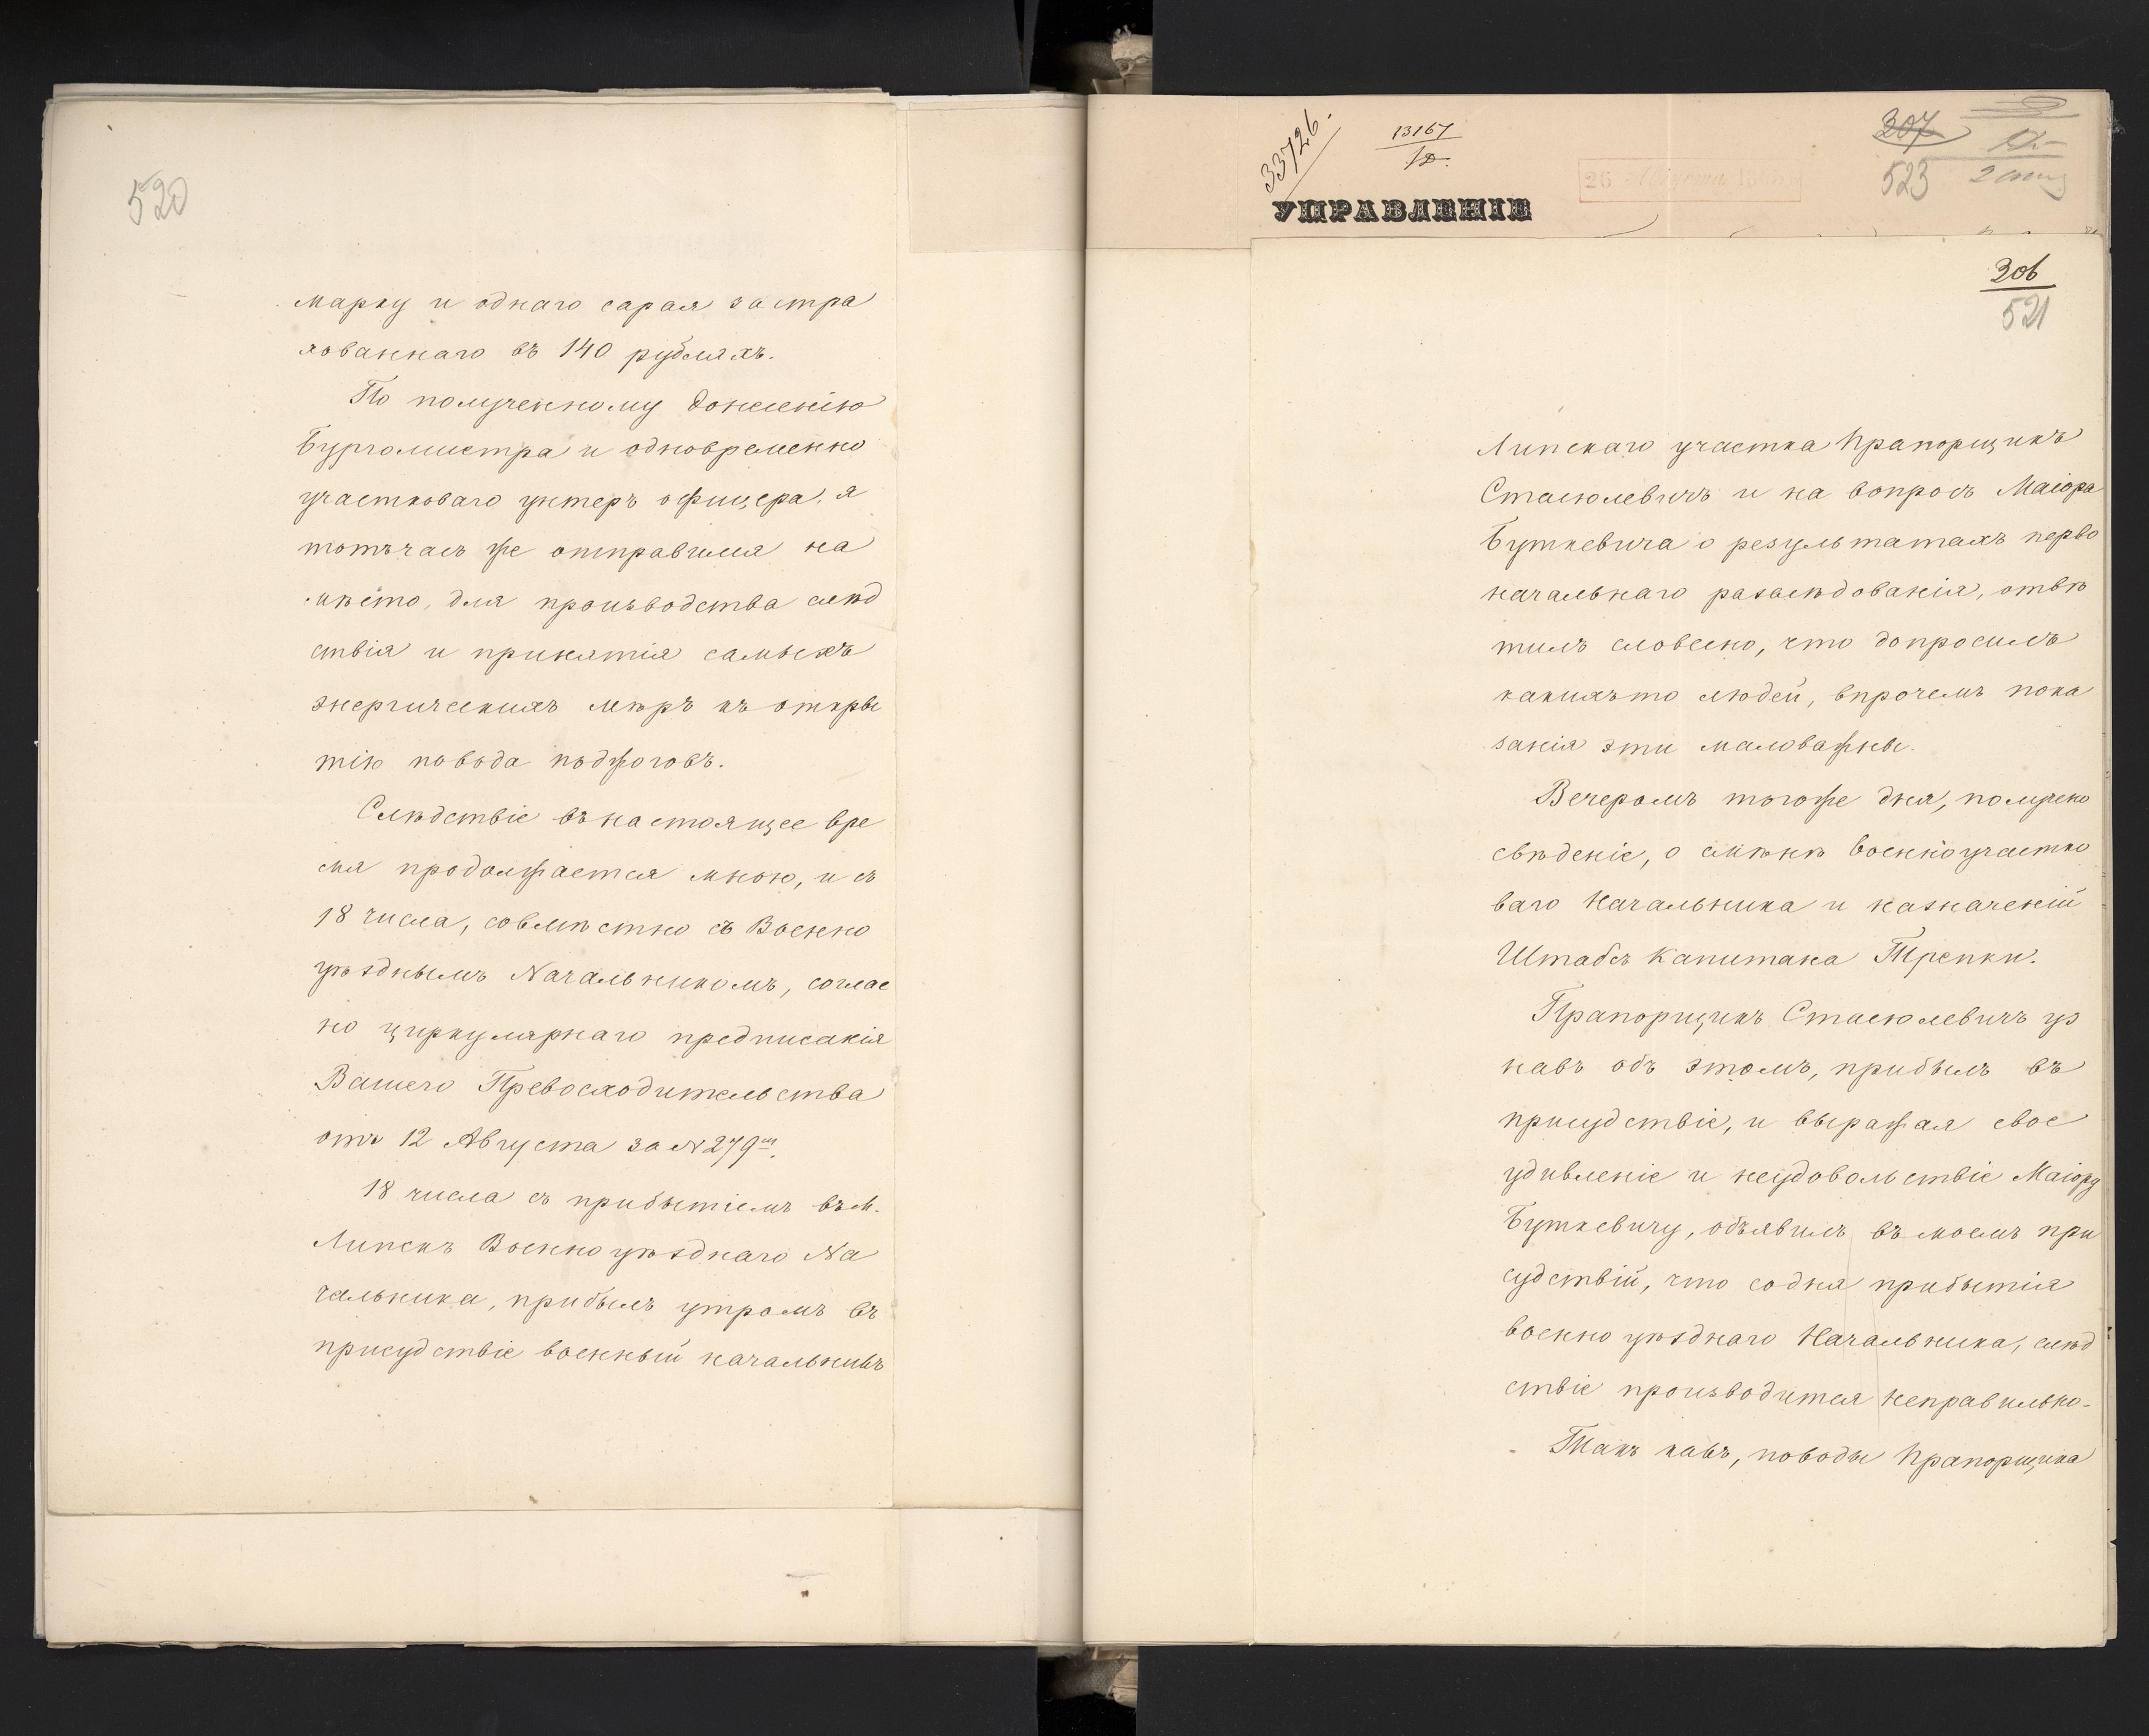 520
марку и однаго сарая застра
хованнаго въ 140 рубляхъ.
По полученному донесенію
Бургомистра и одновременно
участковаго унтеръ офицера, я
тотъчасъ же отправился на
мѣсто, для производства слѣд
ствія и принятія самыхъ
энергическихъ мѣръ къ откры
тію повода поджоговъ.
Слѣдствіе въ настоящее вре
мя продолжается мною, и съ
18 числа, совмѣстно съ Военно
уѣзднымъ Начальникомъ, соглас
но циркулярнаго предписанія
Вашего Превосходительства
отъ 12 Августа за № 279.
18 числа съ прибытіемъ въ м.
Липскъ Военно уѣзднаго На
чальника, прибылъ утромъ въ
присудствіе военный начальникъ
33726.
13167
УПРАВЛЕНІЕ
26
307
523
306
521
Липскаго участка Прапорщикъ
Стасюлевичъ и на вопросъ Маіора
Буткевича о результатахъ перво
начальнаго разслѣдованія, отвѣ
тилъ словесно, что допросилъ
какихъ то людей, впрочемъ пока
занія эти маловажны.
Вечеромъ тогоже дня, получено
свѣденіе, о смѣнѣ военноучастко
ваго Начальника и назначеніи
Штабсъ Капитана Трепки.
Прапорщикъ Стасюлевичъ уз
навъ объ этомъ, прибылъ въ
присудствіе, и выражая свое
удивленіе и неудовольствіе Маіору
Буткевичу, объявилъ въ моемъ при
судствіи, что со дня прибытія
военно уѣзднаго Начальника, слѣд
ствіе производится неправильно.
Такъ какъ, поводы Прапорщика